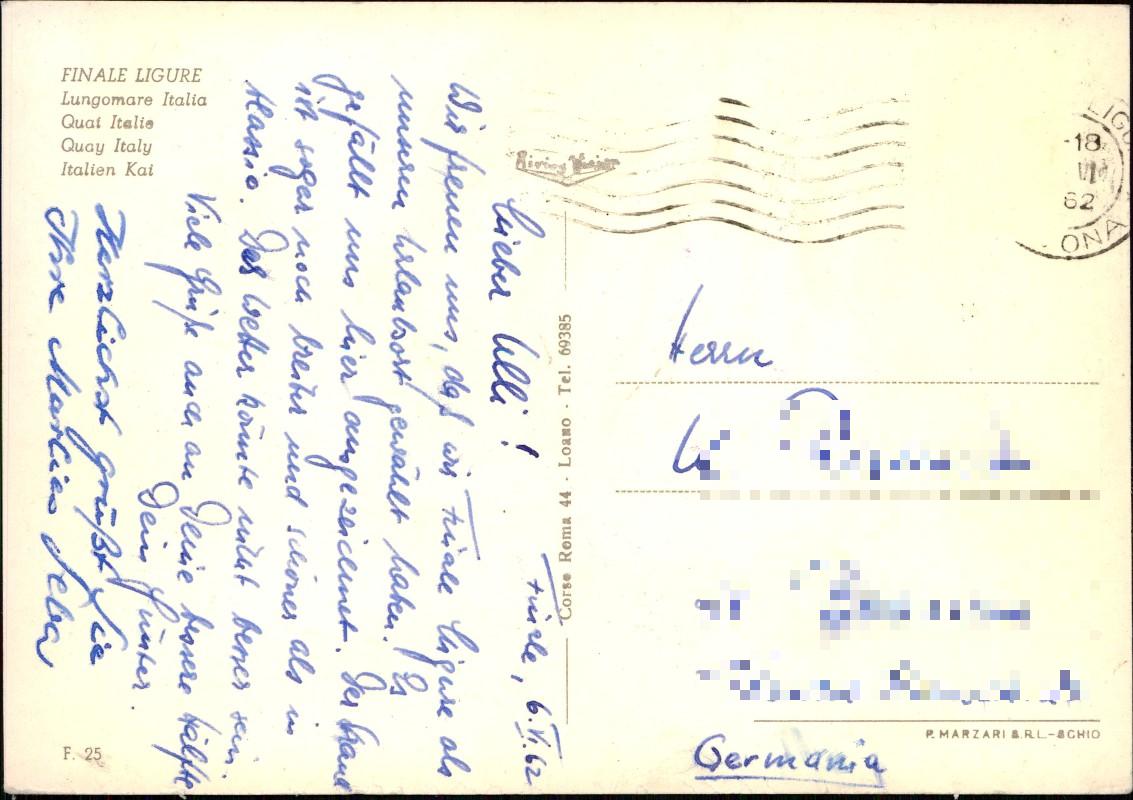 FINALE LIGURE
Lungomare Italia
Quai Italie
Quay Italy
Italien Kai
Finale, 6.V.62
Lieber Ulli!
Wir freuen uns, daß wir Finale Ligure als
unseren Urlaubsort gewählt haben. Es
gefällt uns hier ausgezeichnet. Der Strand
ist sogar noch breiter und schöner als in
Alassio. Das Wetter könnte nicht besser sein.
Viele Grüße auch an Deine bessere Hälfte
Dein Günter.
Herzlichst grüßt Sie
Ihre
F. 25
Corso Roma 44 - Loano - Tel. 69385
LIGU
-18
VI
62
ONA
Herrn
P. MARZARI S.R.L.-SCHIO
Germania